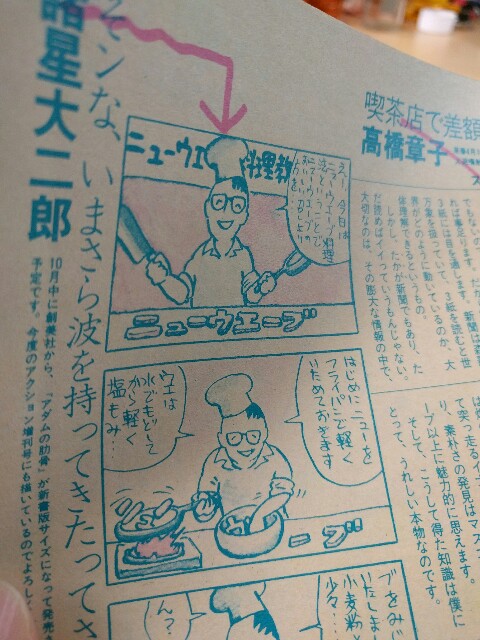 喫茶店で差額
高橋章子
でもない。
新聞は
れば
3紙には目を通します。
万象を扱っていて、3紙を読むと世
界がどのように動いているのか、大
体理解できるというもの。
しかし、たかが新聞でもあり、た
だ読めばイイッていうもんじゃない。
大切なのは、その膨大な情報の中で、
て突っ走るイ
り、素朴さの発見はマス
ープ以上に魅力的に思えます。
そして、こうして得た知識は僕に
とって、うれしい本物なのです。
ニューウェ
料理教
えー今日は
ニューウェーブ料理
ニューウエーブ
はじめにニューを
フライパンで軽く
いためておきます
ウエは
水でもどして
から軽く
塩もみ…
ーブ
ブをみじ
いたしま
小麦粉と
少々…
ん?
そンな、いまさら波を持ってきたってさ
諸星大二郎
10月中に創美社から、「アダムの肋骨」が新書版サイズになって発売
予定です。今度のアクション増刊号にも描いているのでよろし